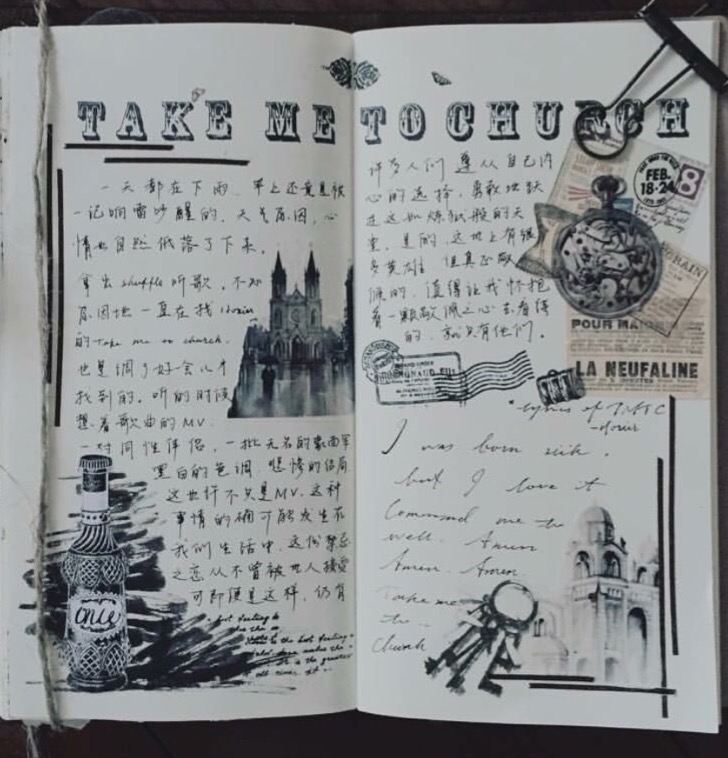 TAKE ME TO CHURCH
一天都在下雨，早上还竟是被
一记响雷吵醒的，天气原因，心
情也自然低落了下来。
拿出shuffle听歌，不知
原因地一直在找Hozier
的take me to church.
也是调了好一会儿才
找到的。听的时候
想着歌曲的MV.
一对同性伴侣，一批无名的蒙面军
黑白的色调，悲惨的结局
这也许不只是MV,这种
事情的确可能发生在
我们生活中，这份禁忌
之恋从不曾被世人接受
可即便是这样，仍有
许多人们遵从自己内
心的选择，勇敢地跃
进这如炼狱般的天
堂，是的，这世上有很
多英雄，但真正敬
候的，值得让我怀抱
着一颗敬佩之心去看待
的，就只有他们。
FEB.
18-24
8
POUR MA
LA NEUFALINE
onie
*lyrics of TMTC
-Hozier
I was born sick,
but I love it
Command me to
well. Amen
Amen. Amen
Take me
to
Church